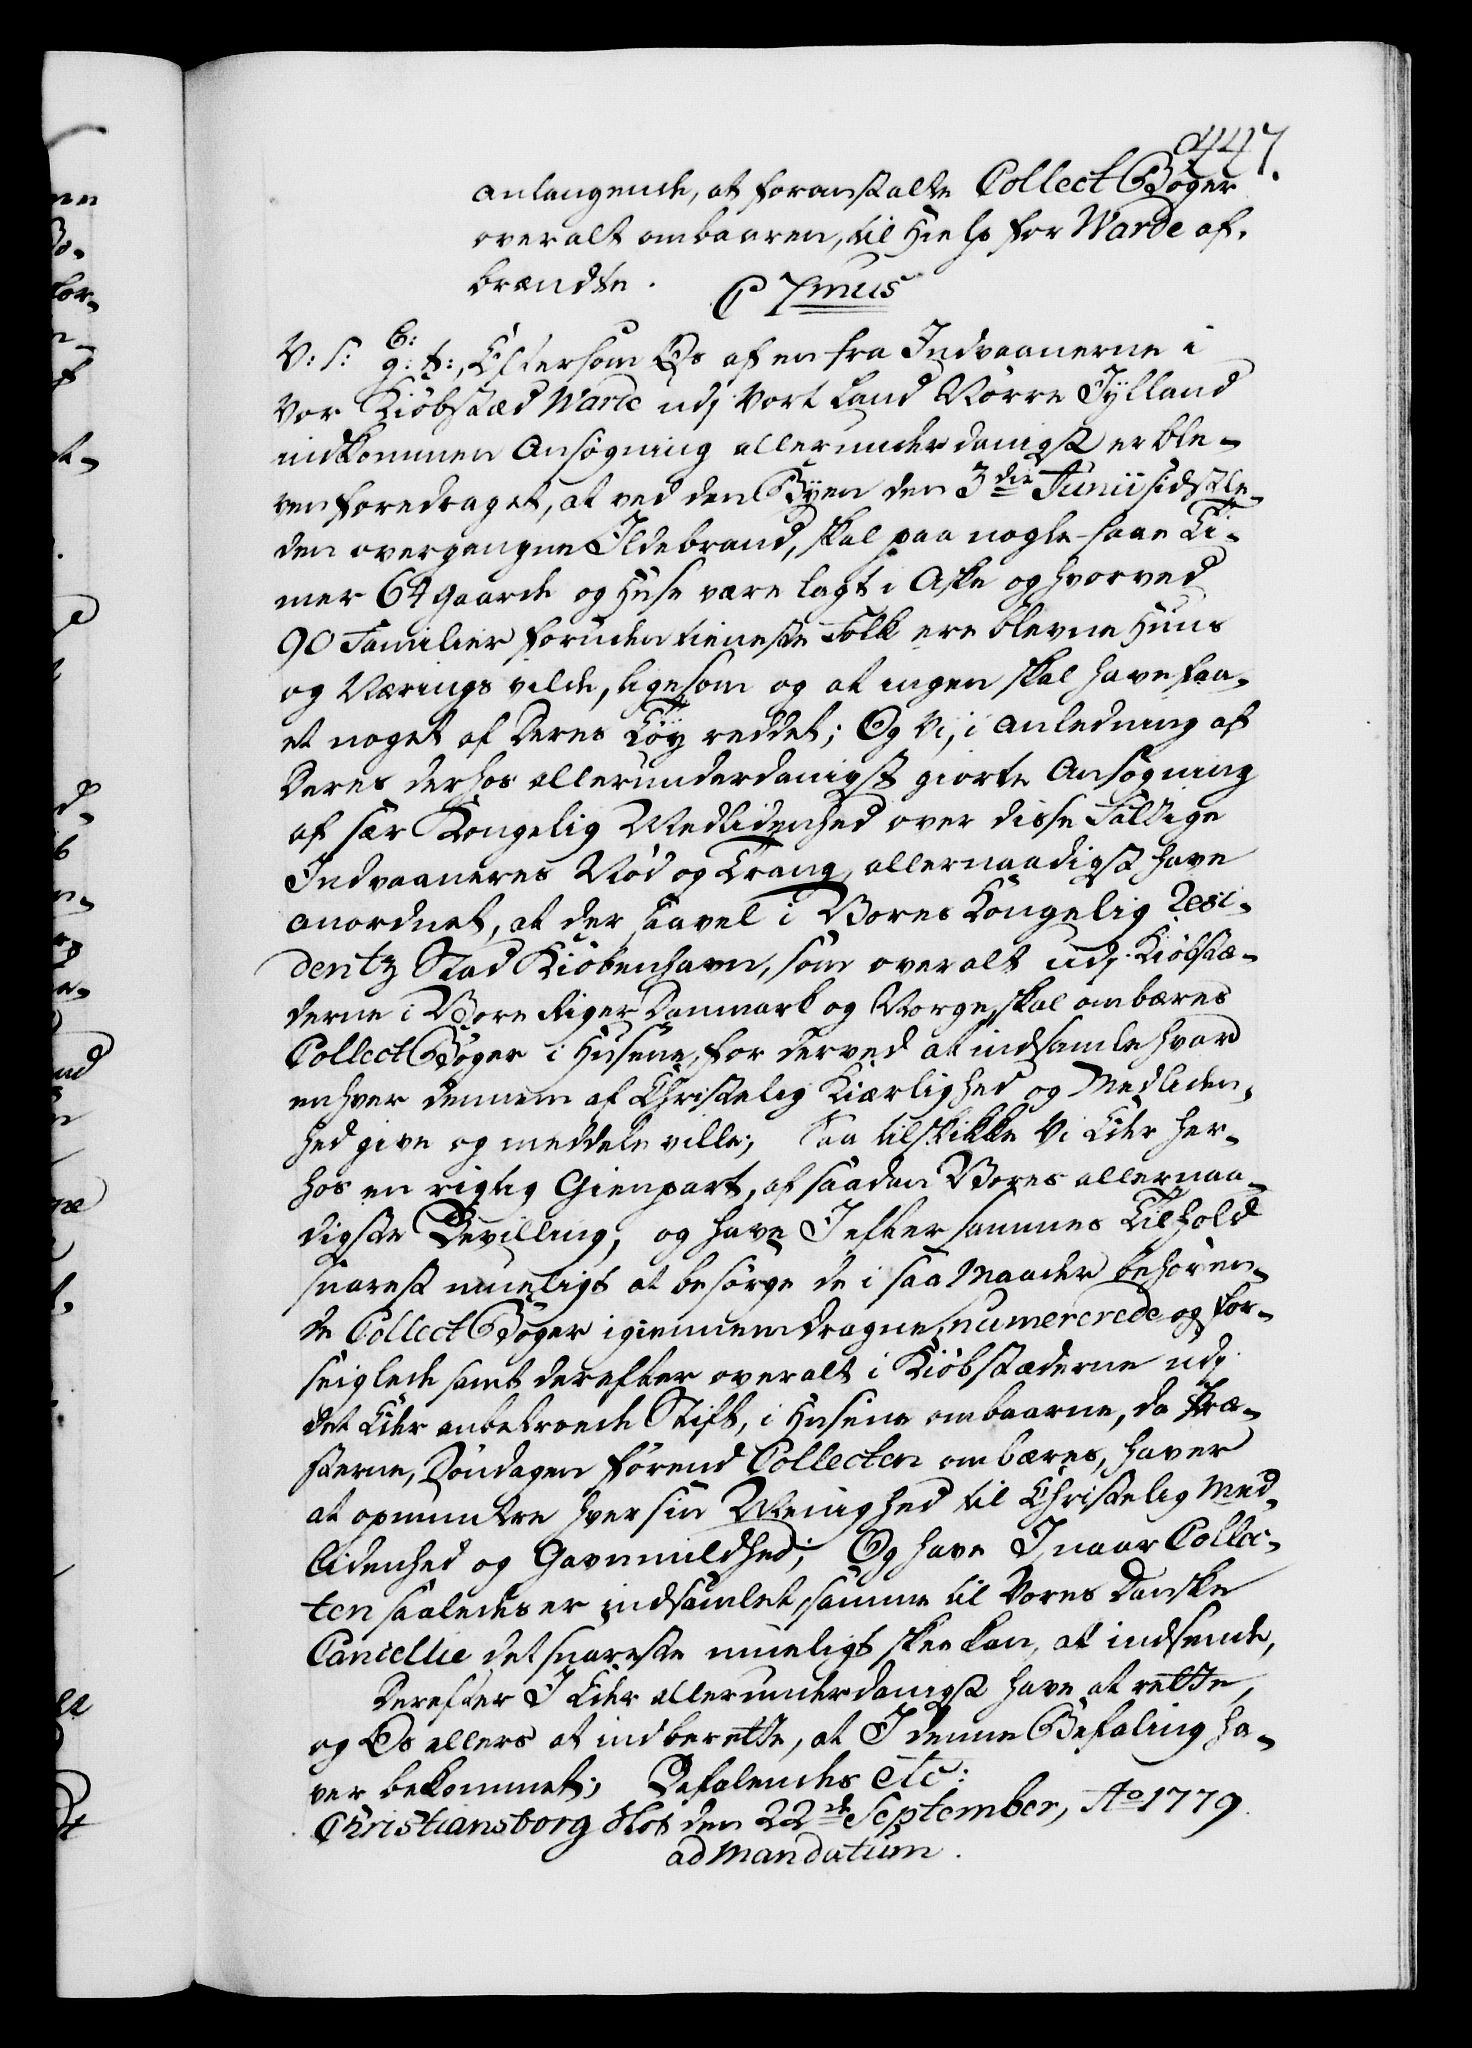 447.
anlangende, at foranstalte Collect Bøger
overalt ombaaren, til Hielp for Warde af-
brændte. C 7mus
V: S: G: g: t:, Eftersom Os af en fra Indvaanerne i
Vor Kiøbstæd Warde udj Vort Land Nørre Jylland
indkommen Ansøgning allerunderdanigst er ble-
ven foredraget, at ved den Byen den 3die Junii sidstle-
den overgangne Ildebrand, skal paa nogle faae Ti-
mer 64 Gaarde og Huse være lagt i Aske og hvorved
90 Familier foruden tieneste Folk ere blevne Huus
og Nærings vilde, ligesom og at ingen skal have faa-
et noget af Deres Tøy reddet; Og Vi, i anledning af
Deres derhos allerunderdanigst giorte Ansøgning
af sær Kongelig Medlidenhed over disse Fattige
Indvaaneres Nød og Trang, allernaadigst have
anordnet, at der saavel i Vores Kongelig Resi-
dentz Stad Kiøbenhavn, som overalt udj Kiøbstæ-
derne i Vore Riger Danmark og Norge, skal ombæres
Collect Bøger i Husene, for derved at indsamle hvad
enhver dennem af Christelig Kiærlighed og Medliden-
hed give og meddele ville; Saa tilskikke Vi Eder her-
hos en rigtig Gienpart, af saadan Vores allernaa-
digste Bevilling; og have I efter sammes Tilhold
snarest mueligt at besørge de i saa Maader behøren-
de Collect Bøger igiennemdragne, numererede og for-
seiglede samt derefter overalt i Kiøbstæderne udj
det Eder anbetroede Stift, i Husene ombaarne, da Præ-
sterne, Søndagen førend Collecten ombæres, haver
at opmuntre hver sin Menighed til Christelig Med-
lidenhed og Gavmildhed; Og have I, naar Collec-
ten saaledes er indsamlet, samme til Vores Danske
Cancellie det snareste mueligt skee kan, at indsende,
Derefter I Eder allerunderdanigst have at rette,
og Os ellers at indberette, at I denne Befaling ha-
ver bekommet; Befalendes etc:
Christiansborg Slot den 22de September, Ao 1779.
ad mandatum.